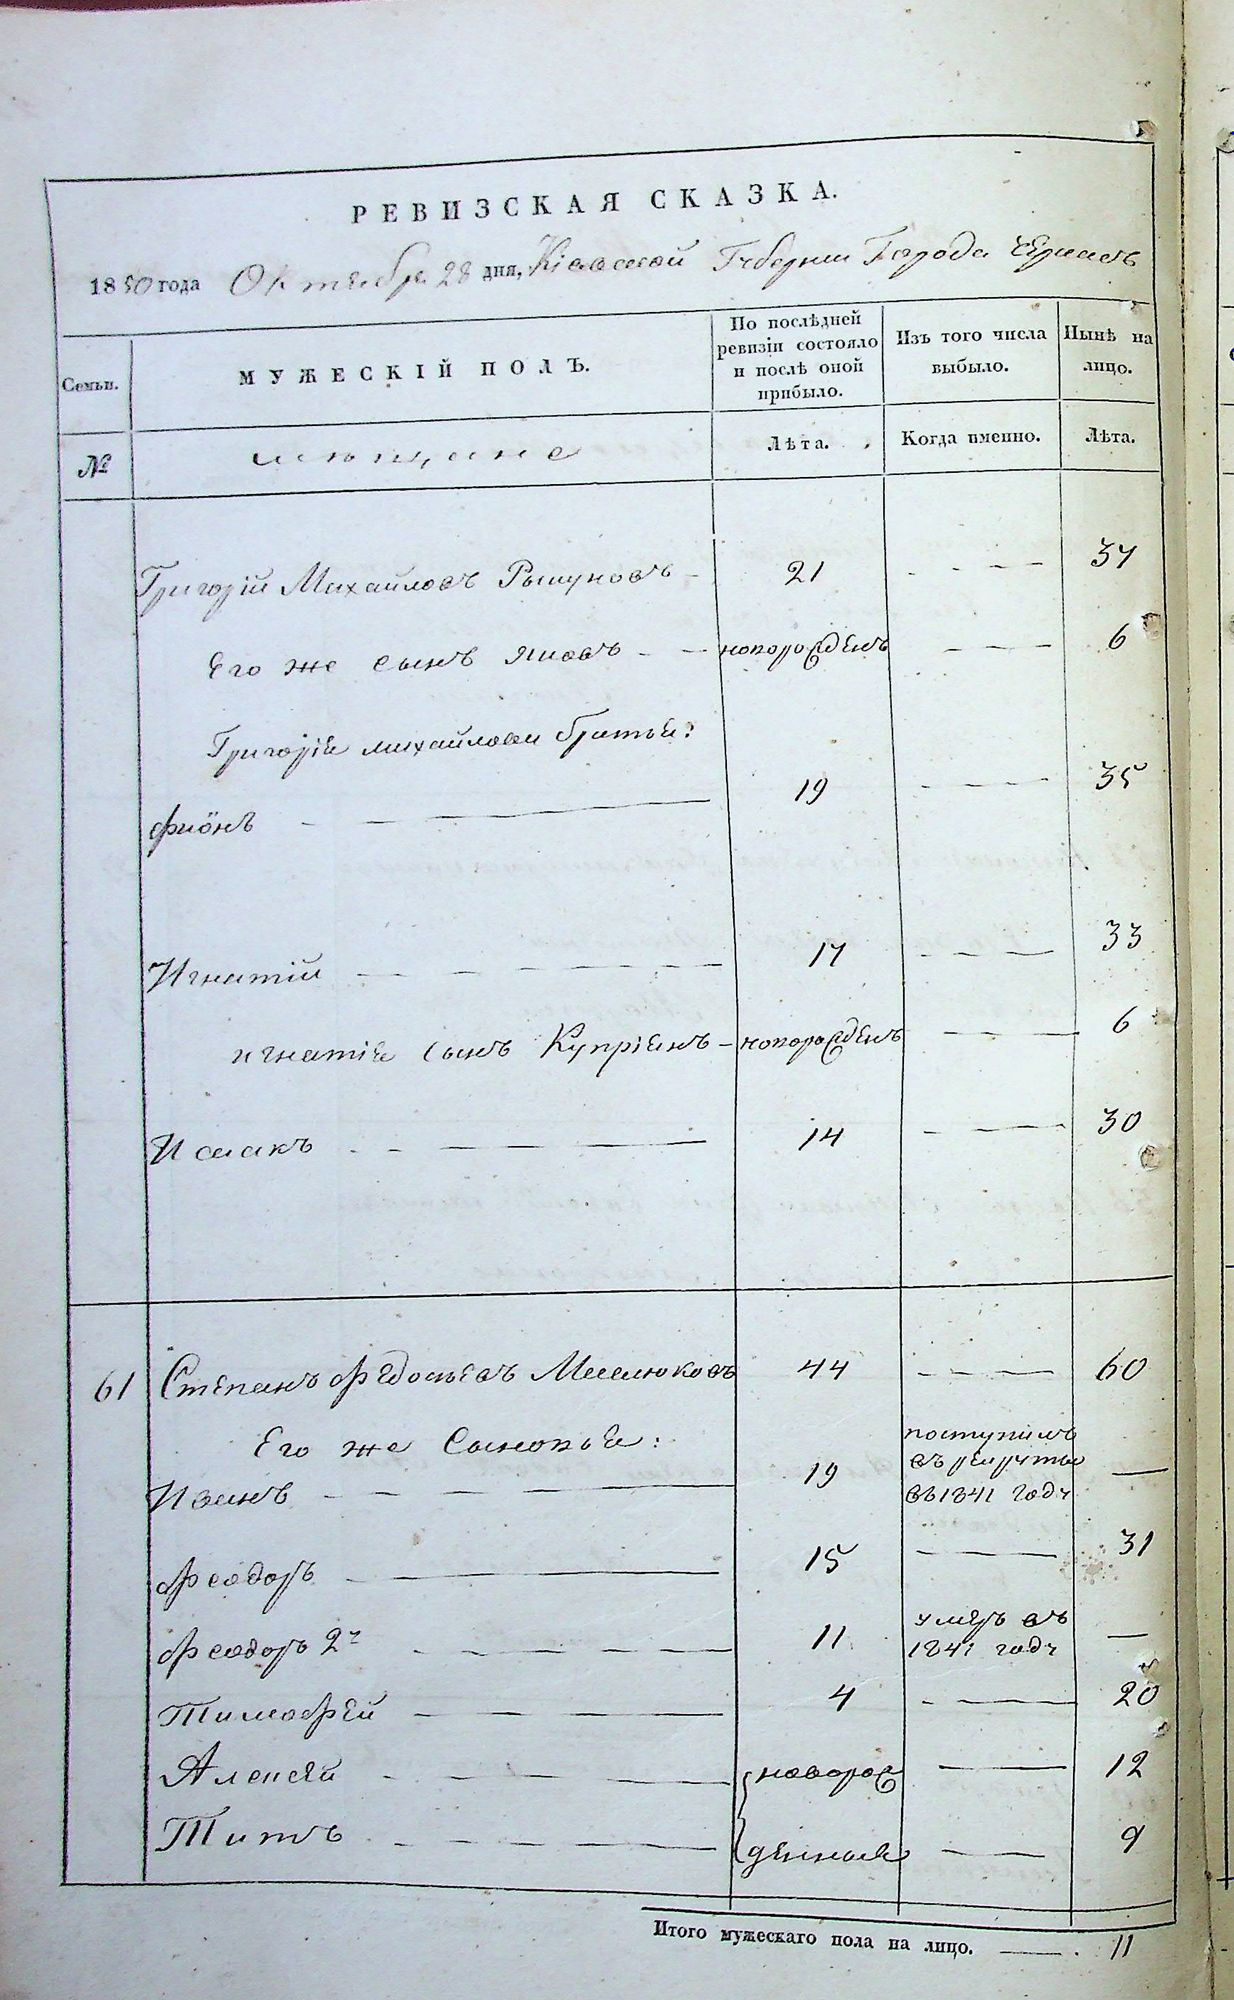 РЕВИЗСКАЯ СКАЗКА.
1850 года Октября 28 дня, Кіевской Губерніи Города Черкасъ
Семьи.
МУЖЕСКІЙ ПОЛЪ.
По послѣдней ревизіи состояло и послѣ оной прибыло.
Изъ того числа выбыло.
Нынѣ на лицо.
№
мѣщане
Лѣта.
Когда именно.
Лѣта.
Григорій Михайловъ 21 - - - - 37
Его же сынъ Яковъ - - новорожденъ - - - 6
Григорія Михайлова братья:
Фиёнъ - - - - 19 - - - - 35
Игнатій - - - - - - 17 - - - - 33
Игнатія сынъ Купріянъ - новорожденъ - - - 6
Исаакъ - - - - - 14 - - - - 30
61 Степанъ Федосьевъ 44 - - - - 60
Его же Сыновья:
Иванъ - - - - - 19 поступилъ въ рекруты въ 1841 году —
Феодоръ - - - - 15 - - - 31
Феодоръ 2й - - - - - 11 умеръ въ 1841 году —
Тимофей - - - - - 4 - - - 20
Алексей - - - - - новорож - - 12
Титъ - - - - - денные - - 9
Итого мужескаго пола на лицо. — . 11